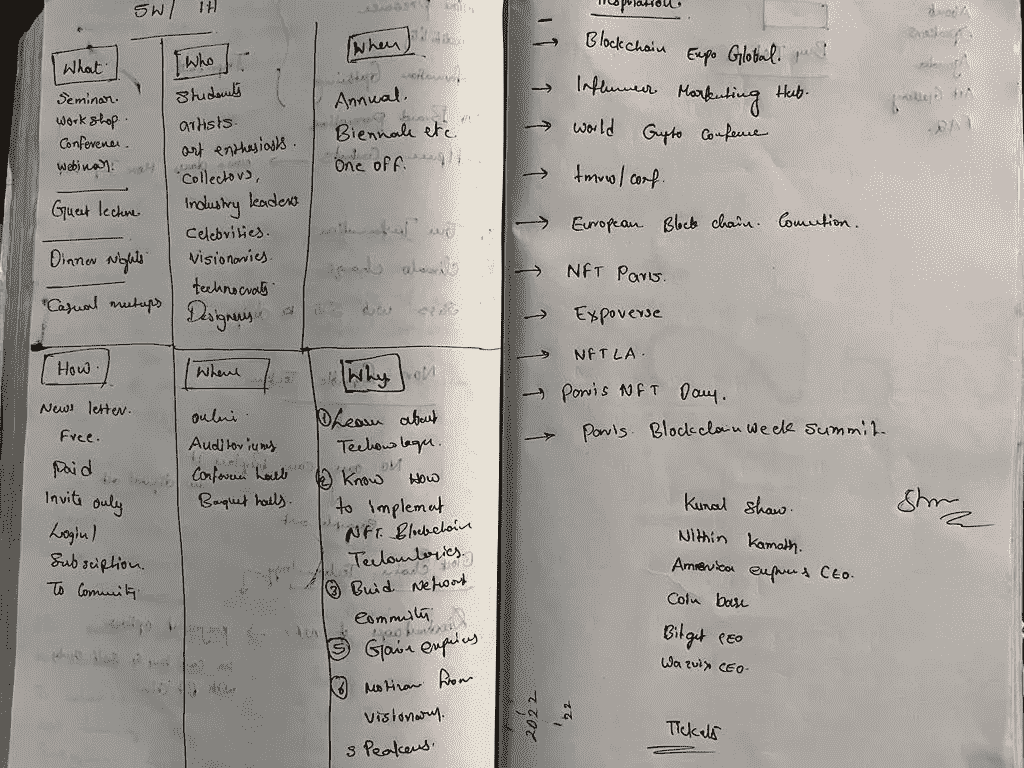 5W/ 1H
What
Seminar.
workshop.
Conference.
webinar.
Guest lecture
Dinner Nights
Casual meetups
Who
Students
artists.
art enthasists.
Collectors,
Industry leaders
Celebrities.
Visionaries.
technocrats
Designers
When
Annual.
Biennale etc.
One off.
How.
News letter.
Free.
paid
Invite only
Login/
Subsciption.
To Comunity
Where
Auditoriums
Conference halls
Banquet halls.
Why
① Learn about
② Know How
to implement
NFT. Blockchain
③ Buid Network
⑤ Gain
⑥ from
visionary.
speakers.
Inspiration.
→ Blockchain Expo Global.
→ Influencer Marketing Hub.
→ World Crypto Conference
→ tmrw/conf.
→ European Block chain.
→ NFT Paris.
→ Expoverse
→ NFT LA.
→ Paris NFT Day.
→ Paris. Blockchain week Summit.
Kunal Shaw.
Nithin Kamath.
American express CEO.
Coin base
Bitget CEO
Wazirx CEO.
2022
22
Tickets